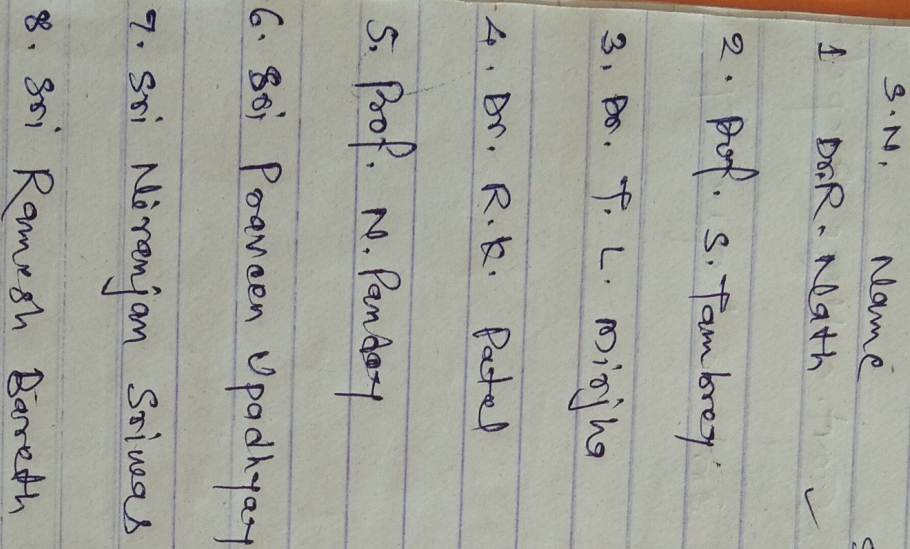 S.N. Name
1 Dr. R. Nath ✓
2. Prof. S. Tambrey
3. Dr. T. L. Mirjha
4. Dr. R.K. Patel
5. Prof. N. Pandey
6. Sri Praveen Upadhyay
7. Sri Niranjan Sriwas
8. Sri Ramesh Barreth